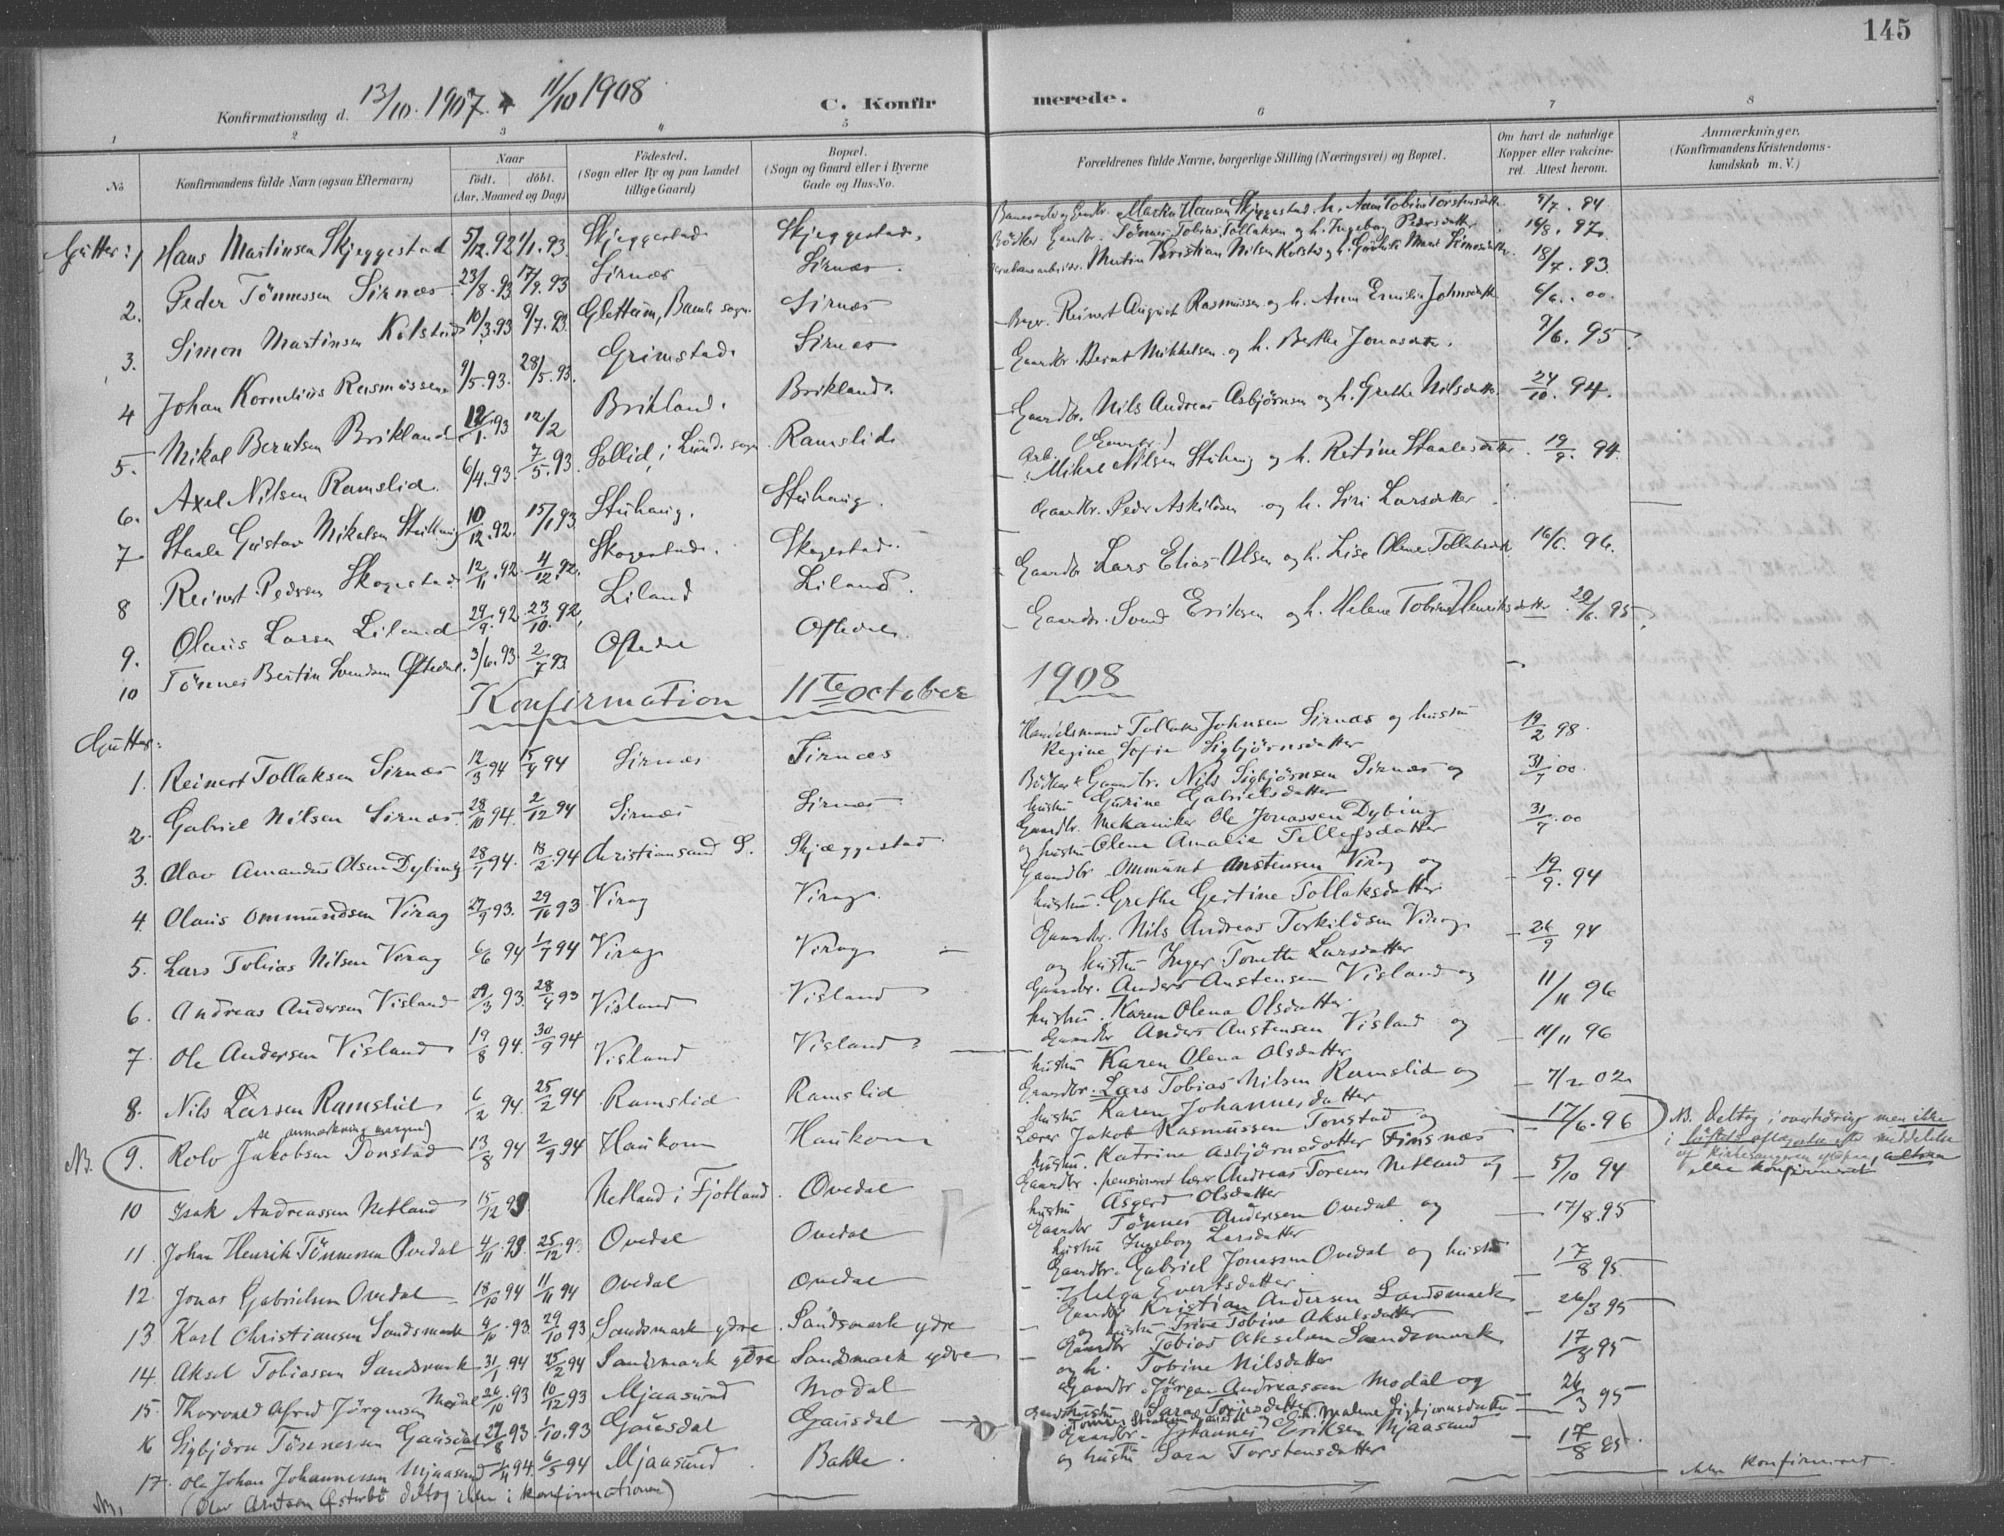 145
Konfirmationsdag d. 13/10. 1907. 11/10 1908
C. Konfirmerede.
1 2 3 4 5 6 7 8
No
Konfirmandens fulde Navn (ogsaa Efternavn)
Naar
født. døbt.
(Aar, Maaned og Dag)
Fødested.
(Sogn eller By og paa Landet
tillige Gaard)
Bopæl.
(Sogn og Gaard eller i Byerne
Gade og Hus-No.
Forældrenes fulde Navne, borgerlige Stilling (Næringsvei) og Bopæl.
Om havt de naturlige
Kopper eller vakcine-
ret. Attest herom.
Anmærkninger.
(Konfirmandens Kristendoms-
kundskab m. V.)
Gutter: 1 Hans Martinsen Skjeggestad 5/12.92 1/1.93. Skjeggestad. Skjeggestad. Martin Hansen Skjeggestad. h. Anne Tobine Torstensdtr. 9/7. 94
2. Peder Tönnessen Sirnæs 23/8.93 17/9.93 Sirnæs Sirnæs. Bödker Gaardbr. Tönnes Tobias Tollaksen og h. Ingeborg Pedersdatter 16/8. 97.
3. Simon Martinsen Kolstad 10/3.93 9/7.93. Glettum, Bamle sogn. Sirnæs Martin Kristian Nilsen Kolstad og h. Marie Simonsdtr. 18/7. 93.
4 Johan Kornelius Rasmussen 9/5.93. 28/5.93. Grimstad. Sirnæs Bager. Reinert August Rasmussen og h. Anne Emilie Johnsdtr. 6/6. 00.
5. Mikal Berntsen Brikland 12/1.93 12/2 Brikland. Brikland. Gaardbr. Bernt Mikkelsen og h. Berthe Jonasdtr. 7/6. 95
6. Axel Nilsen Ramslid. 6/4.93. 7/5.93. Sollid, i Lunde sogn. Ramslid Gaardbr. Nils Andreas Asbjørnsen og h. Grethe Nilsdatter. 24/10. 94.
7 Staale Gustav Mikalsen Stuhaug 10/12.92. 15/1.93. Stuhaug. Stuhaug. Arb. (Gaardbr.) Mikal Nilsen Stuhaug og h. Retine Staalesdatter. 19/9. 94.
8 Reinert Pedersen Skogestad 12/11.92. 4/12.92. Skogestad. Skogestad. Gaardbr. Peder Askildsen og h. Siri Larsdatter
9. Olaus Larsen Liland 29/9.92. 23/10.92. Liland Liland. Gaardbr Lars Elias Olsen og h. Lise Olene Tollaksdtr. 16/6. 96.
10 Tönnes Bertin Svendsen Oftedal. 3/6.93. 2/7 93. Oftedal Oftedal. Gaardbr. Svend Eriksen og h. Helene Tobine Henriksdatter. 20/6. 95
Konfirmation 11te october 1908
Gutter:
1. Reinert Tollaksen Sirnæs 12/3 94 15/4 94 Sirnæs Sirnæs Handelsmand Tollak Johnsen Sirnæs og hustru 19/2 98.
Regine Sofie Sigbjørnsdatter
2. Gabriel Nilsen Sirnæs 28/10 94. 2/12 94 Sirnæs Sirnæs Bödker & Gaardbr. Nils Sigbjörnsen Sirnæs og 31/7 00.
hustru Gurine Gabrielsdatter
3. Olav Amandus Olsen Dybing 28/1 94. 18/2 94 Christiansand S. Skjæggestad Gaardbr. Mekaniker Ole Jonassen Dybing 31/7 00
og hustru Olene Amalie Tellefsdatter
4. Olaus Ommundsen Virag 27/9 93. 29/10 93 Virag Virag. Gaardbr Ommunt Anstensen Virag og 19/9. 94
hustru. Grethe Gestine Tollaksdatter
5. Lars Tobias Nilsen Virag 6/6 94 1/7 94 Virag Virag Gaardbr. Nils Andreas Torkildsen Virag 26/9 94
og hustru Inger Tonette Larsdatter
6. Andreas Andersen Visland 29/3 93. 28/4 93 Visland Visland Gaardbr. Anders Anstensen Visland og 11/11 96
hustru. Karen Olena Olsdatter.
7. Ole Andersen Visland 19/8 94. 30/9 94 Visland Visland Gaardbr Anders Anstensen Visland og 11/11 96
hustru Karen Olena Olsdatter
8. Nils Larsen Ramslid 6/2 94. 25/2 94 Ramslid Ramslid Gaardbr. Lars Tobias Nilsen Ramslid og 7/2 02
hustru Karen Johannesdatter
NB. 9. Rolv Jakobsen Tonstad 13/8 94 2/9 94 Haukom Haukom Lærer Jakob Rasmussen Tonstad og 17/6. 96
hustru. Katrine Asbjörnsdatter Finsnæs
NB. Deltog i overhöring men ikke
i
ikke konfirmeret
10 Isak Andreassen Netland 15/12 93 Netland i Fjotland. Ovedal Gaardbr. pensioneret lærer Andreas Torsen Netland og 5/10 94
hustru Asgerd Olsdatter
11. Johan Henrik Tönnessen Ovedal 4/11 93. 25/12 93 Ovedal Ovedal Gaardbr Tönnes Andersen Ovedal og 17/8.95
hustru Ingeborg Larsdatter
12. Jonas Gabrielsen Ovedal 18/10 94 11/11 94 Ovedal Ovedal Gaardbr. Gabriel Jonassen Ovedal og hustru 17/8 95
Helga Evertsdatter
13 Karl Christiansen Sandsmark 9/10. 93. 29/10 93 Sandsmark ydre Sandsmark ydre Gaardbr Kristian Andersen Sandsmark 26/3 95
og hustru Trine Tobine Akselsdatter
14. Aksel Tobiassen Sandsmark 31/1 94 25/2 94 Sandsmark ydre Sandsmark ydre Gaardbr Tobias Akselsen Sandsmark 17/8 95
og h. Tobine Nilsdatter
15. Thorvald Alfred Jörgensen Modal 26/10. 93 10/12 93 Mjaasund Modal Gaardbr. Jörgen Andreassen Modal og 26/3 95
hustru Sara Torjesdatter
16 Sigbjörn Tönnessen Gausdal 27/8 93 1/10.93 Gausdal Gausdal Malene Sigbjörnsdatter
17. Ole Johan Johannessen Mjaasund 1/4 94. 6/5 94 Mjaasund Bakke. Gaardbr. Johannes Eriksen Mjaasund 17/8 95.
og hustru Sara Torstensdatter
NB. (Olav Arntsen Österbö deltog ikke i konfirmationen) ikke konfirmeret.